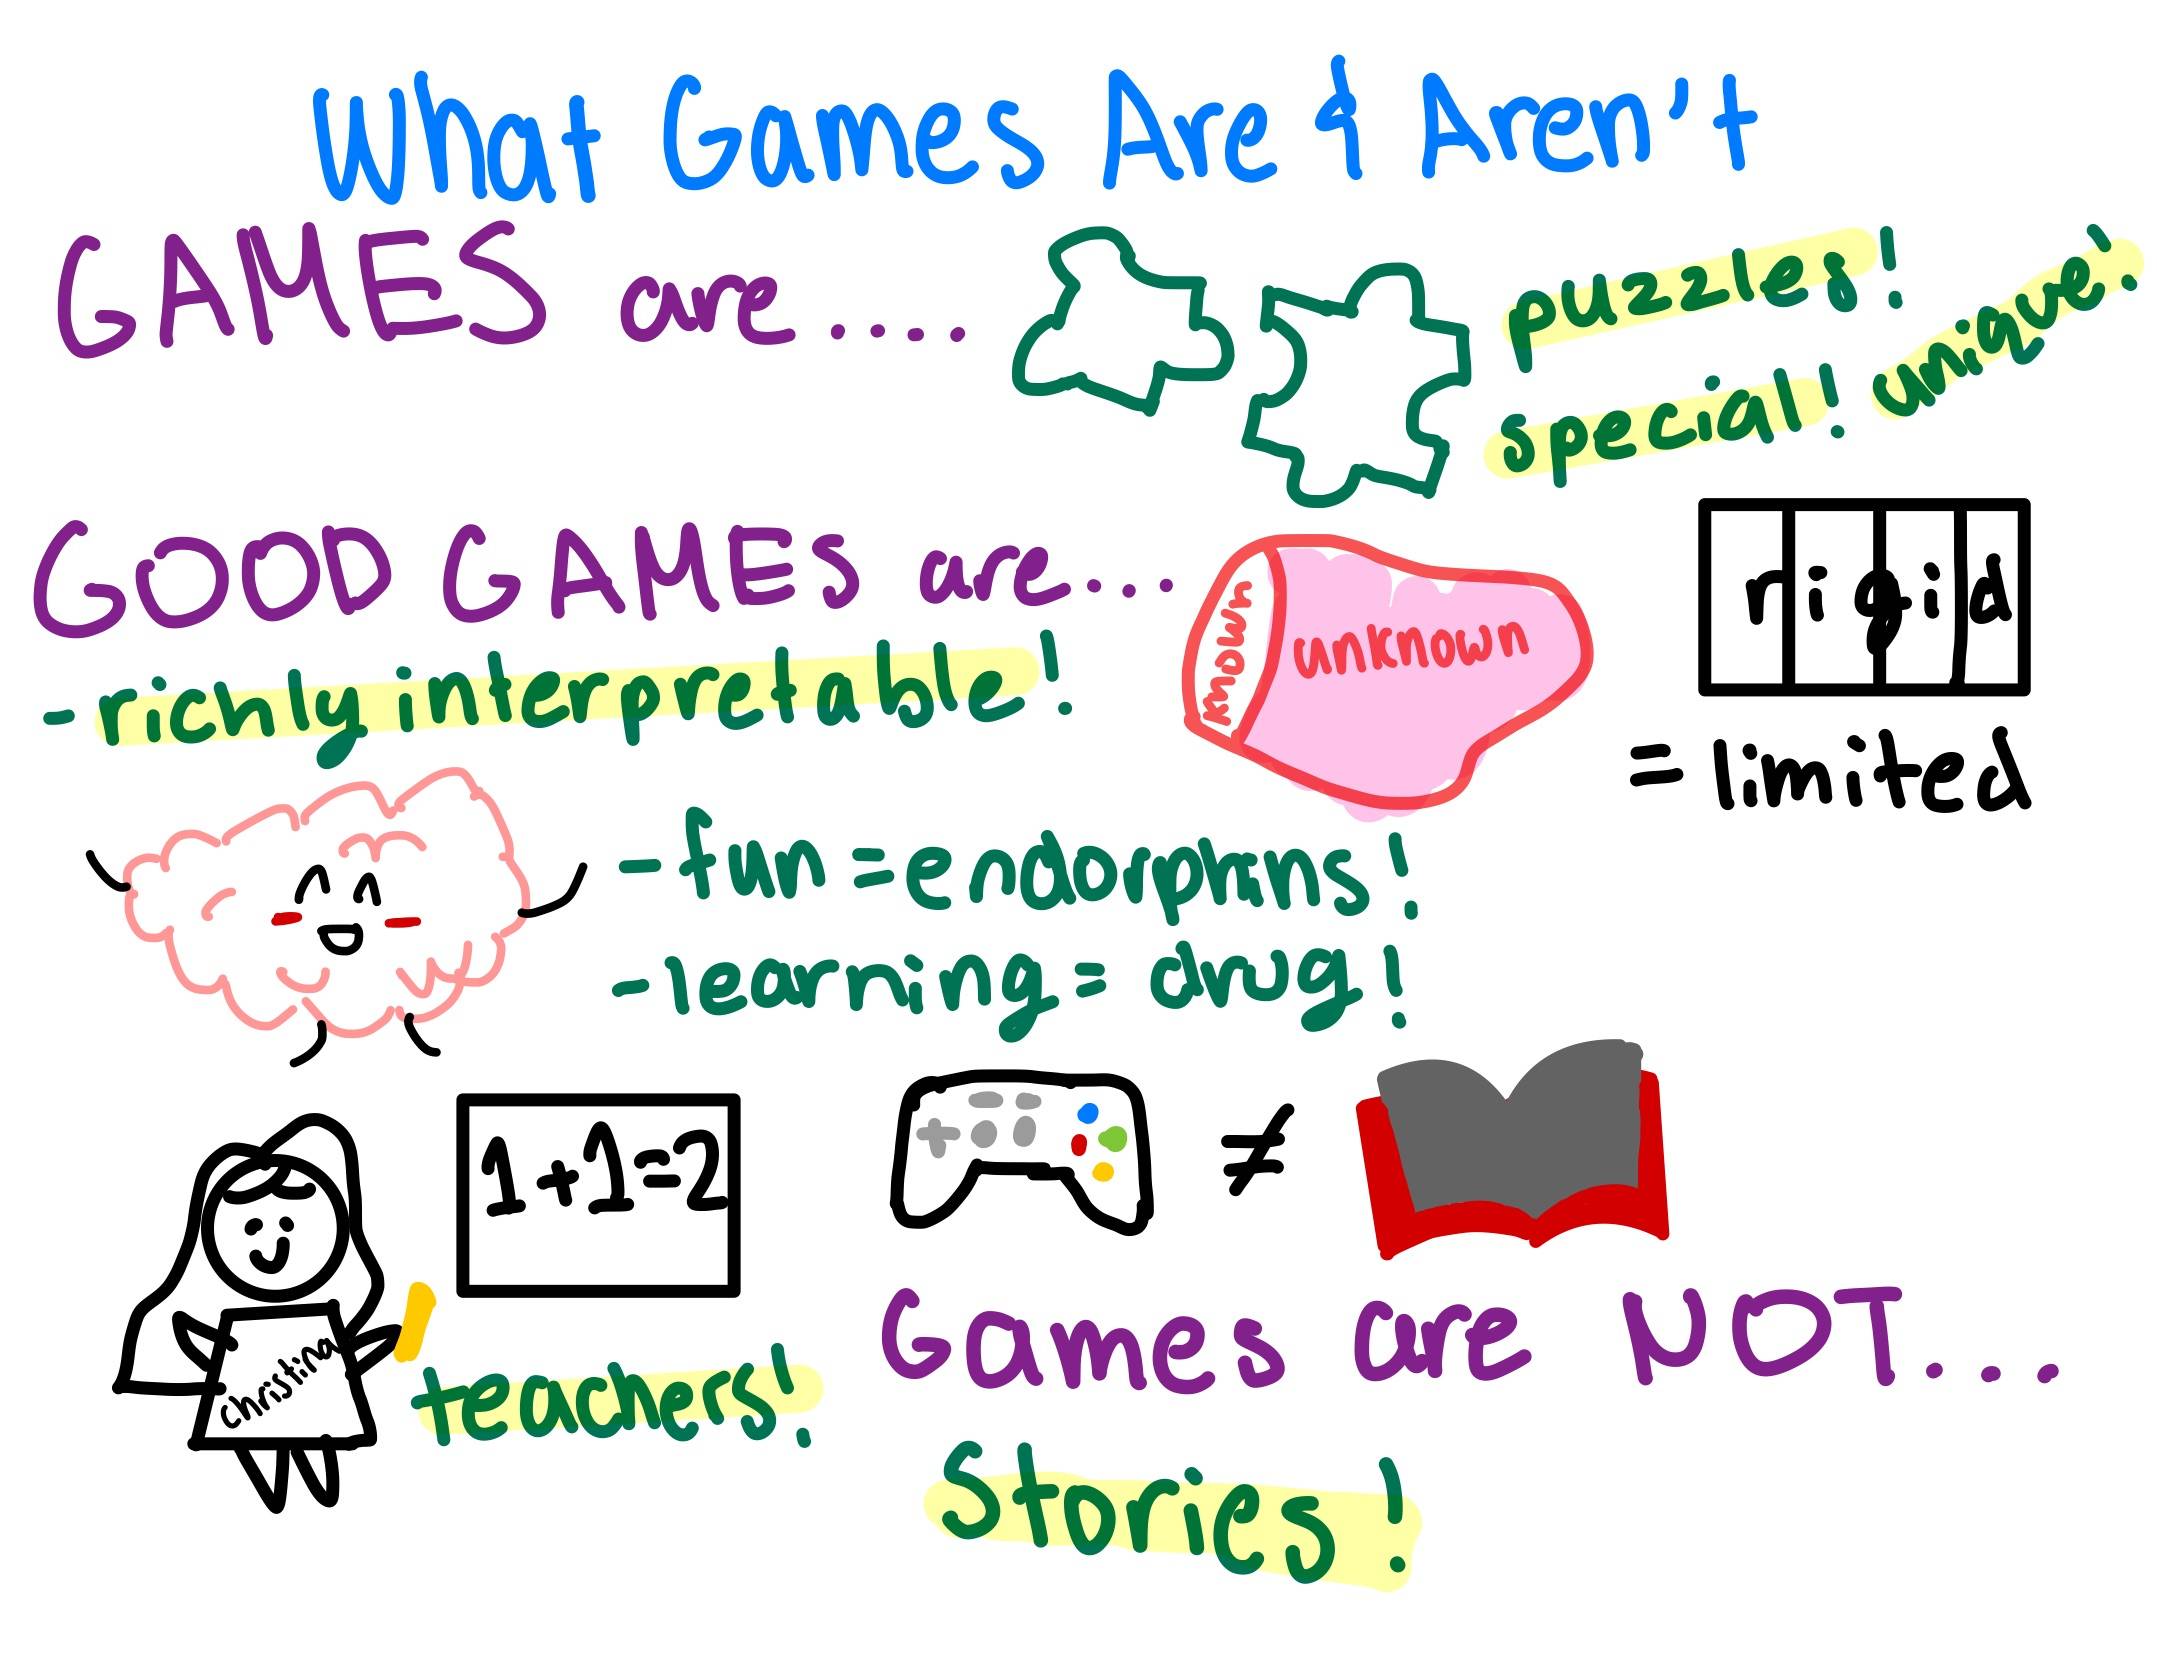 What Games Are & Aren't
GAMES are ....
puzzles!
special!
unique!
GOOD GAMES are...
- richly interpretable!
known
unknown
rigid
= limited
- fun = endorphins!
- learning = drug!
1+1=2
teachers!
≠
Games are NOT...
Stories!